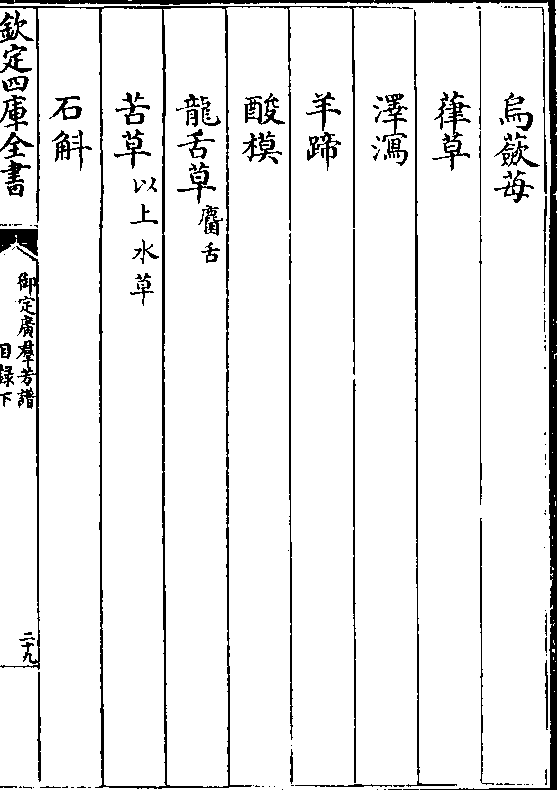 烏蘞苺
葎草
澤瀉
羊蹄
酸模
龍舌草 麕舌
苦草 以上水草
石斛
欽定四庫全書
御定廣羣芳譜
目錄下
二十九